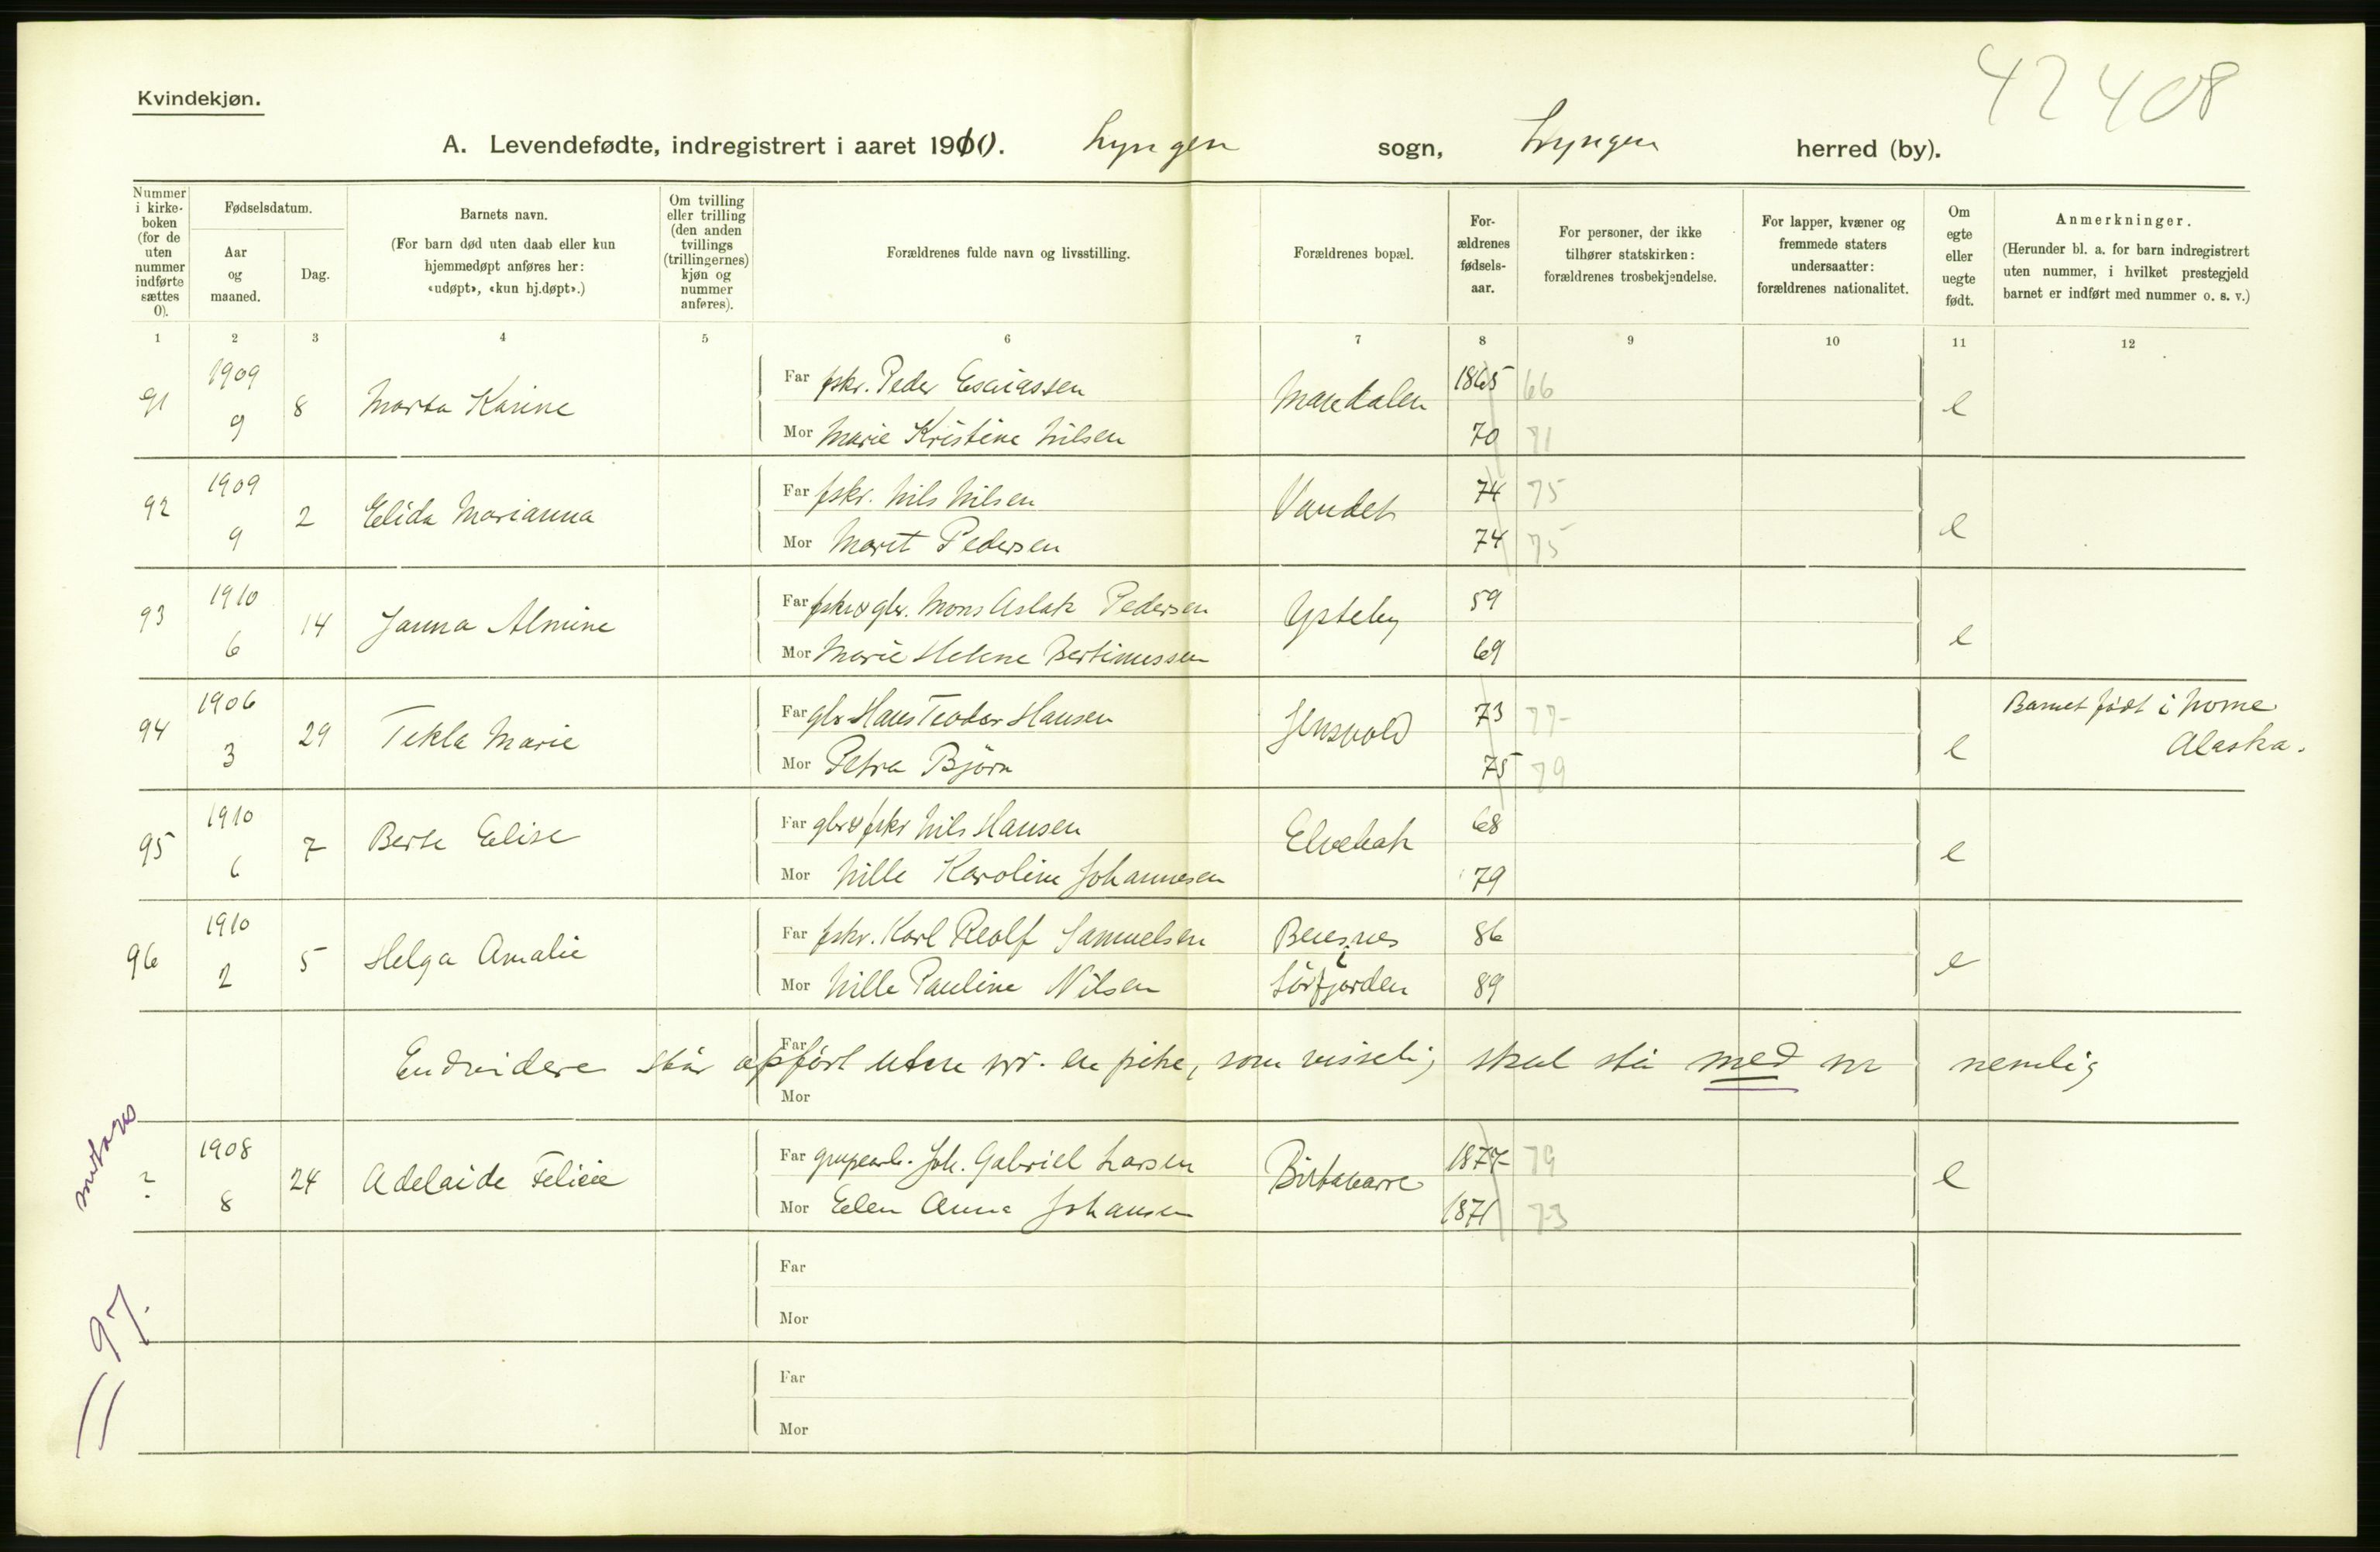 42408
Kvindekjøn.
A. Levendefødte, indregistrert i aaret 1910. Lyngen sogn, Lyngen herred (by).
Nummer i kirke-boken (for de uten nummer indførte sættes 0).
Fødselsdatum.
Aar og maaned.
Dag.
Barnets navn.
(For barn død uten daab eller kun hjemmedøpt anføres her: «udøpt», «kun hj.døpt».)
Om tvilling eller trilling (den anden tvillings (trillingernes) kjøn og nummer anføres).
Forældrenes fulde navn og livsstilling.
Forældrenes bopæl.
For-ældrenes fødsels-aar.
For personer, der ikke tilhører statskirken: forældrenes trosbekjendelse.
For lapper, kvæner og fremmede staters undersaatter: forældrenes nationalitet.
Om egte eller uegte født.
Anmerkninger.
(Herunder bl. a. for barn indregistrert uten nummer, i hvilket prestegjeld barnet er indført med nummer o. s. v.)
1 2 3 4 5 6 7 8 9 10 11 12
91 1909 9 8 Marta Karine Far fskr. Peder Esaiassen Mandalen 1865 66 e
Mor Marie Kristine Nilsen 70 71
92 1909 9 2 Elida Marianna Far fskr. Nils Nilsen Vandet 74 75 e
Mor Marit Pedersen 74 75
93 1910 6 14 Janna Almine Far fskr & gbr. Mons Aslak Pedersen Ysteby 59 e
Mor Marie Helene Bertinussen 69
94 1906 3 29 Tekla Marie Far gbr Hans Teodor Hansen Jensvold 73 77 e Barnet født i Nome
Mor Petra Bjørn 75 79 Alaska.
95 1910 6 7 Berte Elise Far gbr & fskr Nils Hansen Elvebak 68 e
Mor Nille Karoline Johannesen 79
96 1910 2 5 Helga Amalie Far fskr. Karl Reolf Samuelsen 86 e
Mor Nille Pauline Nilsen Sörfjorden 89
Far
Endvidere står opført uten nr. en pike, som visselig skal stå med nr nemlig
Mor
? 1908 8 24 Adelaide Felicie Far Joh. Gabriel Larsen Birtavarre 1877 79 e
Mor Elen Anna Johansen 1871 73
Far
Mor
97.
Far
Mor